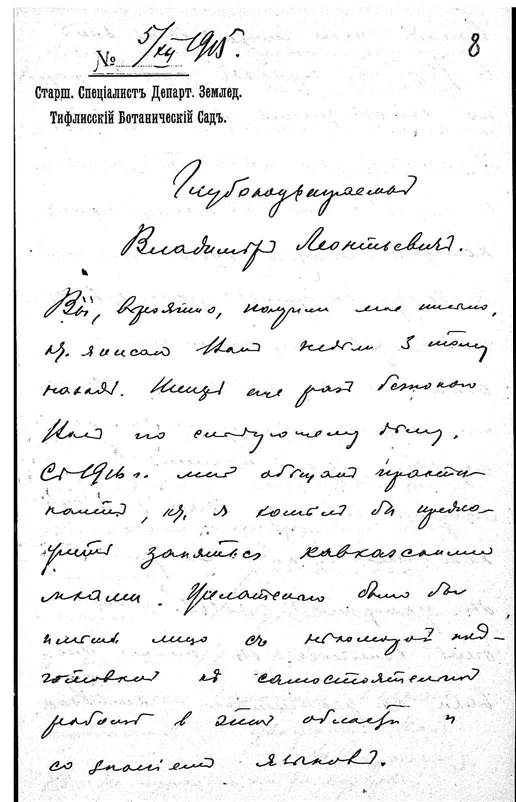 № 5/XII 1915.
8
Старш. Спеціалистъ Департ. Землед.
Тифлисскій Ботаническій Садъ.
Глубокоуважаемый
Владимиръ Леонтьевичъ.
Вы, вѣроятно, получили мое письмо,
кот. я писалъ Вамъ недѣли 3 тому
назадъ. еще разъ безпокою
Васъ по слѣдующему дѣлу.
Съ 1916 г. мнѣ обѣщанъ практи-
кантъ, кот. я хотѣлъ бы предло-
жить заняться кавказскими
мхами. Желательно было бы
имѣть лицо съ нѣкоторой под-
готовкой къ самостоятельной
работѣ в этой области и
со знаніемъ языковъ.